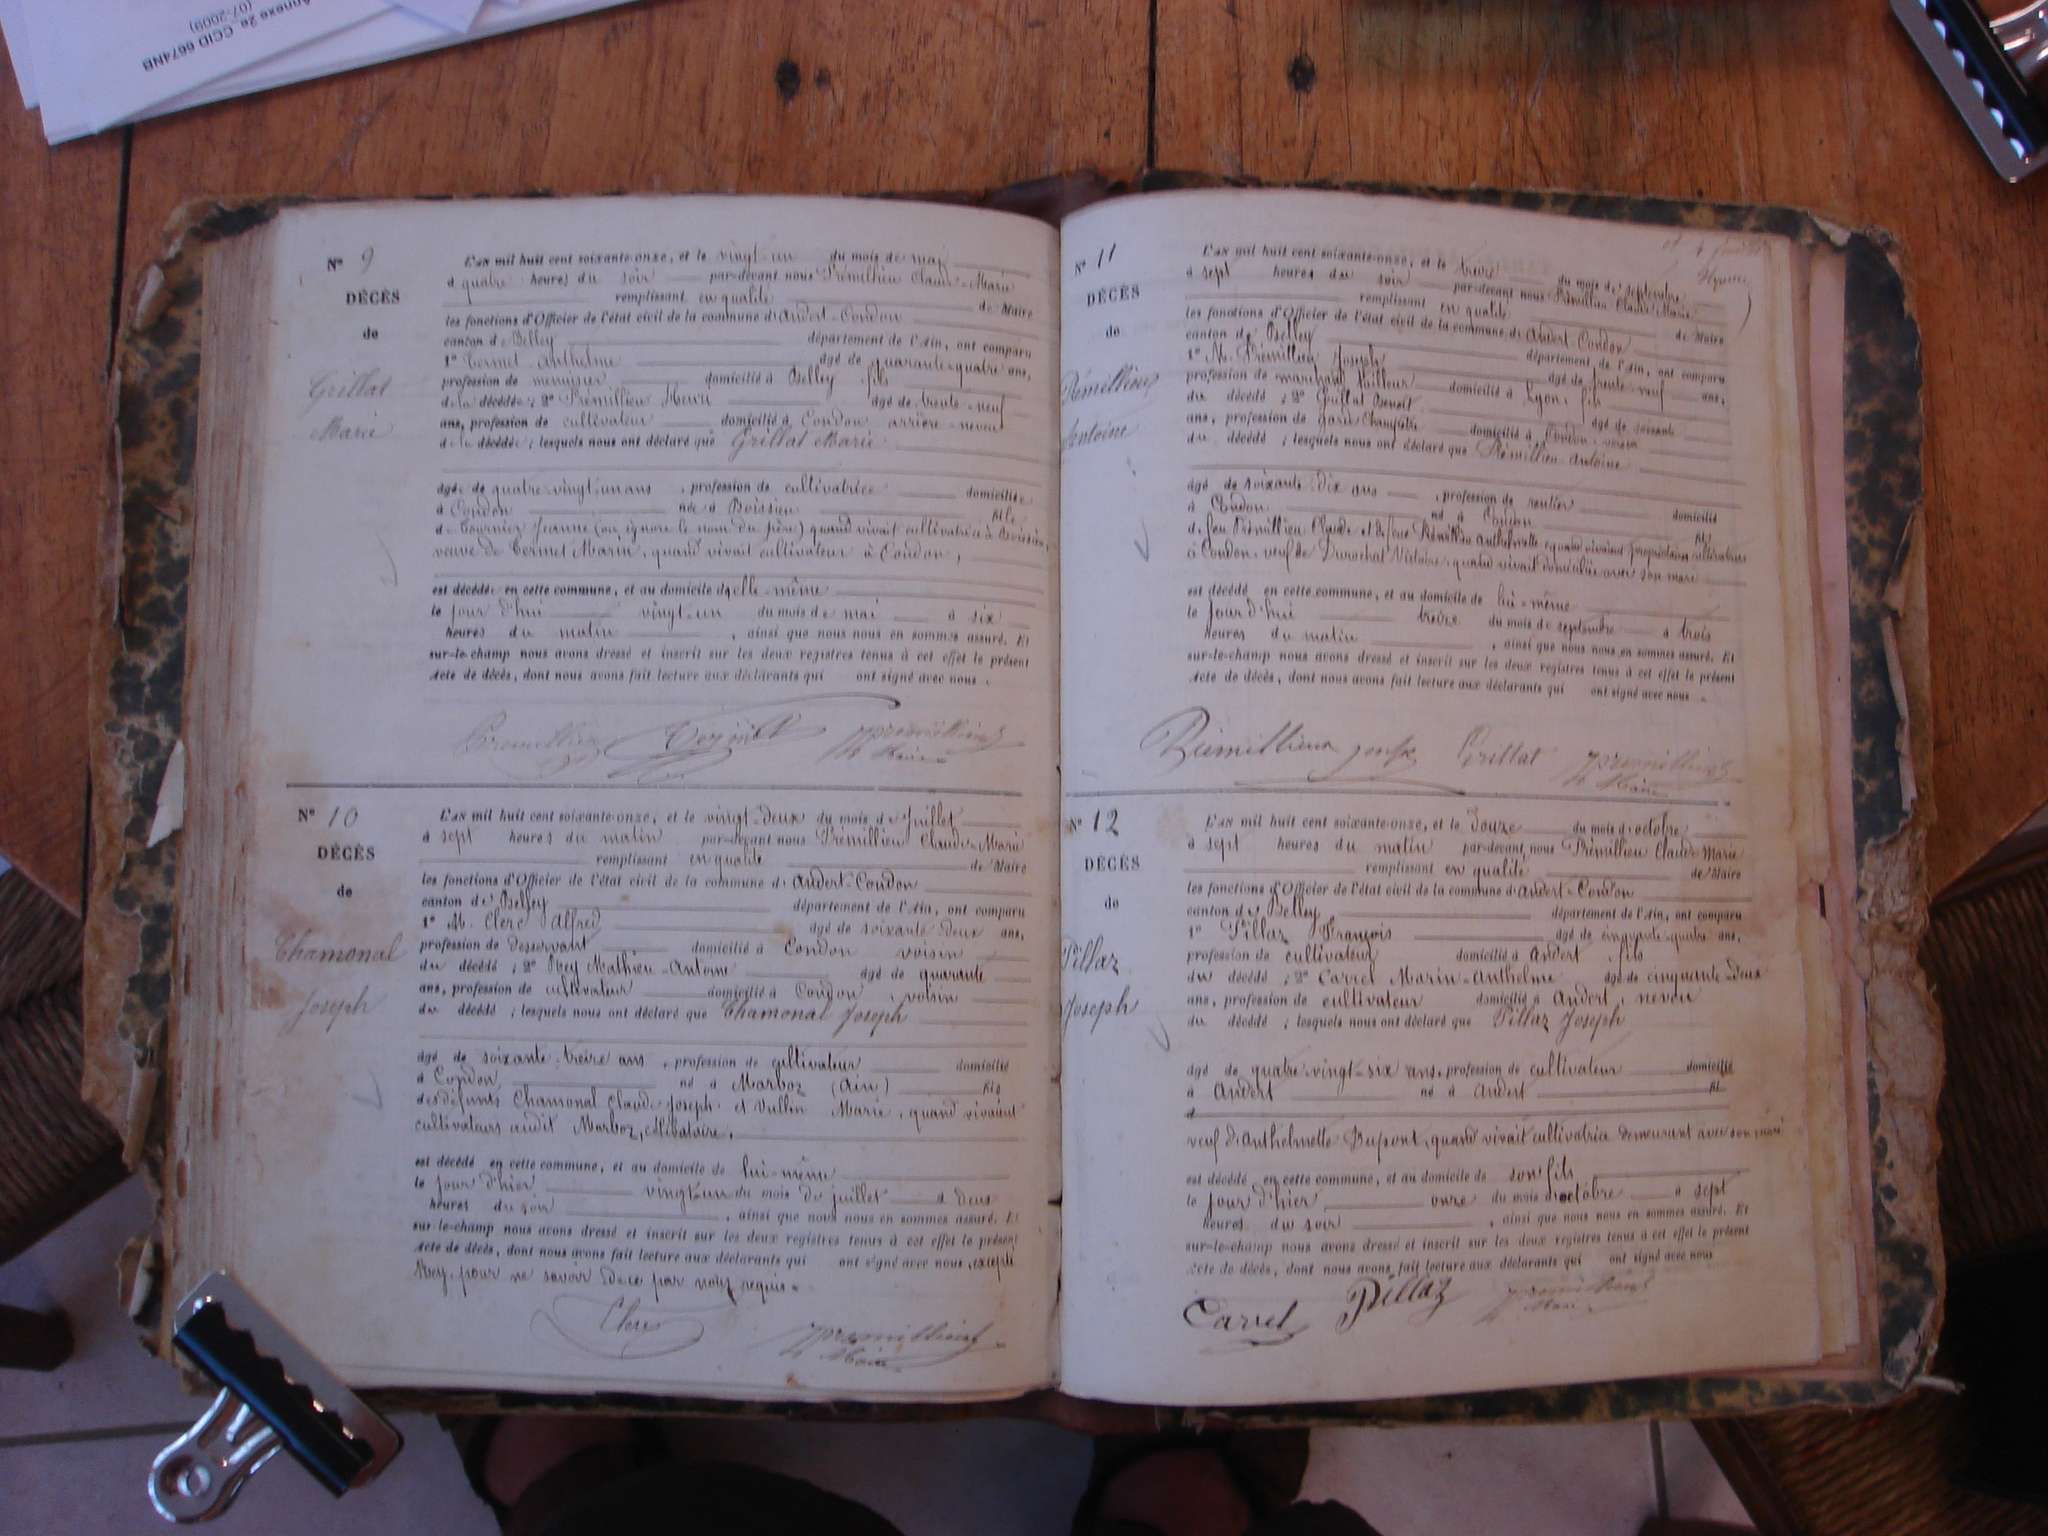 Annexe 2e CCID 6674NB
(07-2009)
N° 9
DÉCÈS
de
Grillat
Marie
L'an mil huit cent soixante-onze, et le vingt-un du mois de mai
à quatre heures du soir par-devant nous Prémillieu Claude-Marie
remplissant en qualité de Maire
les fonctions d'Officier de l'état civil de la commune d'Andert-Condon
canton de Belley département de l'Ain, ont comparu
1° Termet Anthelme âgé de quarante-quatre ans,
profession de menuisier domicilié à Belley fils
de la décédée ; 2° Prémillieu Henri âgé de trente-neuf
ans, profession de cultivateur domicilié à Condon arrière-neveu
de la décédée ; lesquels nous ont déclaré que Grillat Marie
âgée de quatre-vingt-un ans , profession de cultivatrice domiciliée
à Condon née à Boissieu fille
de Jeanne (on ignore le nom du père) quand vivait cultivatrice à Boissieu,
veuve de Termet Marin, quand vivait cultivateur à Condon,
est décédée en cette commune, et au domicile d'elle-même
le jour d'hui vingt-un du mois de mai à six
heures du matin , ainsi que nous nous en sommes assuré. Et
sur-le-champ nous avons dressé et inscrit sur les deux registres tenus à cet effet le présent
Acte de décès, dont nous avons fait lecture aux déclarants qui ont signé avec nous.
Premillieu Termet Premillieu
Maire
N° 10
DÉCÈS
de
Chamonal
Joseph
L'an mil huit cent soixante-onze, et le vingt-deux du mois de juillet
à sept heures du matin par-devant nous Prémillieu Claude-Marie
remplissant en qualité de Maire
les fonctions d'Officier de l'état civil de la commune d'Andert-Condon
canton de Belley département de l'Ain, ont comparu
1° M. Clerc Alfred âgé de soixante deux ans,
profession de desservant domicilié à Condon voisin
du décédé ; 2° Rey Mathieu-Antoine âgé de quarante
ans, profession de cultivateur domicilié à Condon , voisin
du décédé ; lesquels nous ont déclaré que Chamonal Joseph
âgé de soixante-treize ans , profession de cultivateur domicilié
à Condon né à Marboz (Ain) fils
des défunts Chamonal Claude-Joseph et Vullin Marie, quand vivaient
cultivateurs audit Marboz, célibataire,
est décédé en cette commune, et au domicile de lui-même
le jour d'hier vingt-un du mois de juillet à deux
heures du soir , ainsi que nous nous en sommes assuré. Et
sur-le-champ nous avons dressé et inscrit sur les deux registres tenus à cet effet le présent
Acte de décès, dont nous avons fait lecture aux déclarants qui ont signé avec nous, excepté
Rey, pour ne savoir de ce par nous requis.
Clerc Premillieu
Maire
N° 11
DÉCÈS
de
Prémillieu
Antoine
L'an mil huit cent soixante-onze, et le treize du mois de septembre
à sept heures du soir par-devant nous Prémillieu Claude-Marie
remplissant en qualité de Maire
les fonctions d'Officier de l'état civil de la commune d'Andert-Condon
canton de Belley département de l'Ain, ont comparu
1° M. Prémillieu Joseph âgé de trente-neuf ans,
profession de marchand tailleur domicilié à Lyon, fils
du décédé ; 2° Grillat Benoit âgé de soixante
ans, profession de garde Champêtre domicilié à Condon voisin
du décédé ; lesquels nous ont déclaré que Prémillieu Antoine
âgé de soixante-dix ans , profession de rentier domicilié
à Condon né à Condon fils
de feu Prémillieu Claude et de feue Prémillieu Anthelmette quand vivaient propriétaires cultivateurs
à Condon, veuf de Durochat Victoire, quand vivait domiciliée avec son mari
est décédé en cette commune, et au domicile de lui-même
le jour d'hui treize du mois de septembre à trois
heures du matin , ainsi que nous nous en sommes assuré. Et
sur-le-champ nous avons dressé et inscrit sur les deux registres tenus à cet effet le présent
Acte de décès, dont nous avons fait lecture aux déclarants qui ont signé avec nous.
Prémillieux Joseph Grillat Premillieu
Maire
N° 12
DÉCÈS
de
Pillaz
Joseph
L'an mil huit cent soixante-onze, et le douze du mois d'octobre
à sept heures du matin par-devant nous Prémillieu Claude-Marie
remplissant en qualité de Maire
les fonctions d'Officier de l'état civil de la commune d'Andert-Condon
canton de Belley, département de l'Ain, ont comparu
1° Pillaz François âgé de cinquante-quatre ans,
profession de cultivateur domicilié à Andert , fils
du décédé ; 2° Carrel Marin-Anthelme âgé de cinquante-deux
ans, profession de cultivateur domicilié à Andert, neveu
du décédé ; lesquels nous ont déclaré que Pillaz Joseph
âgé de quatre-vingt-six ans, profession de cultivateur domicilié
à Andert né à Andert fil
d
veuf d'Anthelmette Dupont, quand vivait cultivatrice demeurant avec son mari
est décédé en cette commune, et au domicile de son fils
le jour d'hier onze du mois d'octobre à sept
heures du soir , ainsi que nous nous en sommes assuré. Et
sur-le-champ nous avons dressé et inscrit sur les deux registres tenus à cet effet le présent
Acte de décès, dont nous avons fait lecture aux déclarants qui ont signé avec nous
Carrel Pillaz Premillieu
Maire